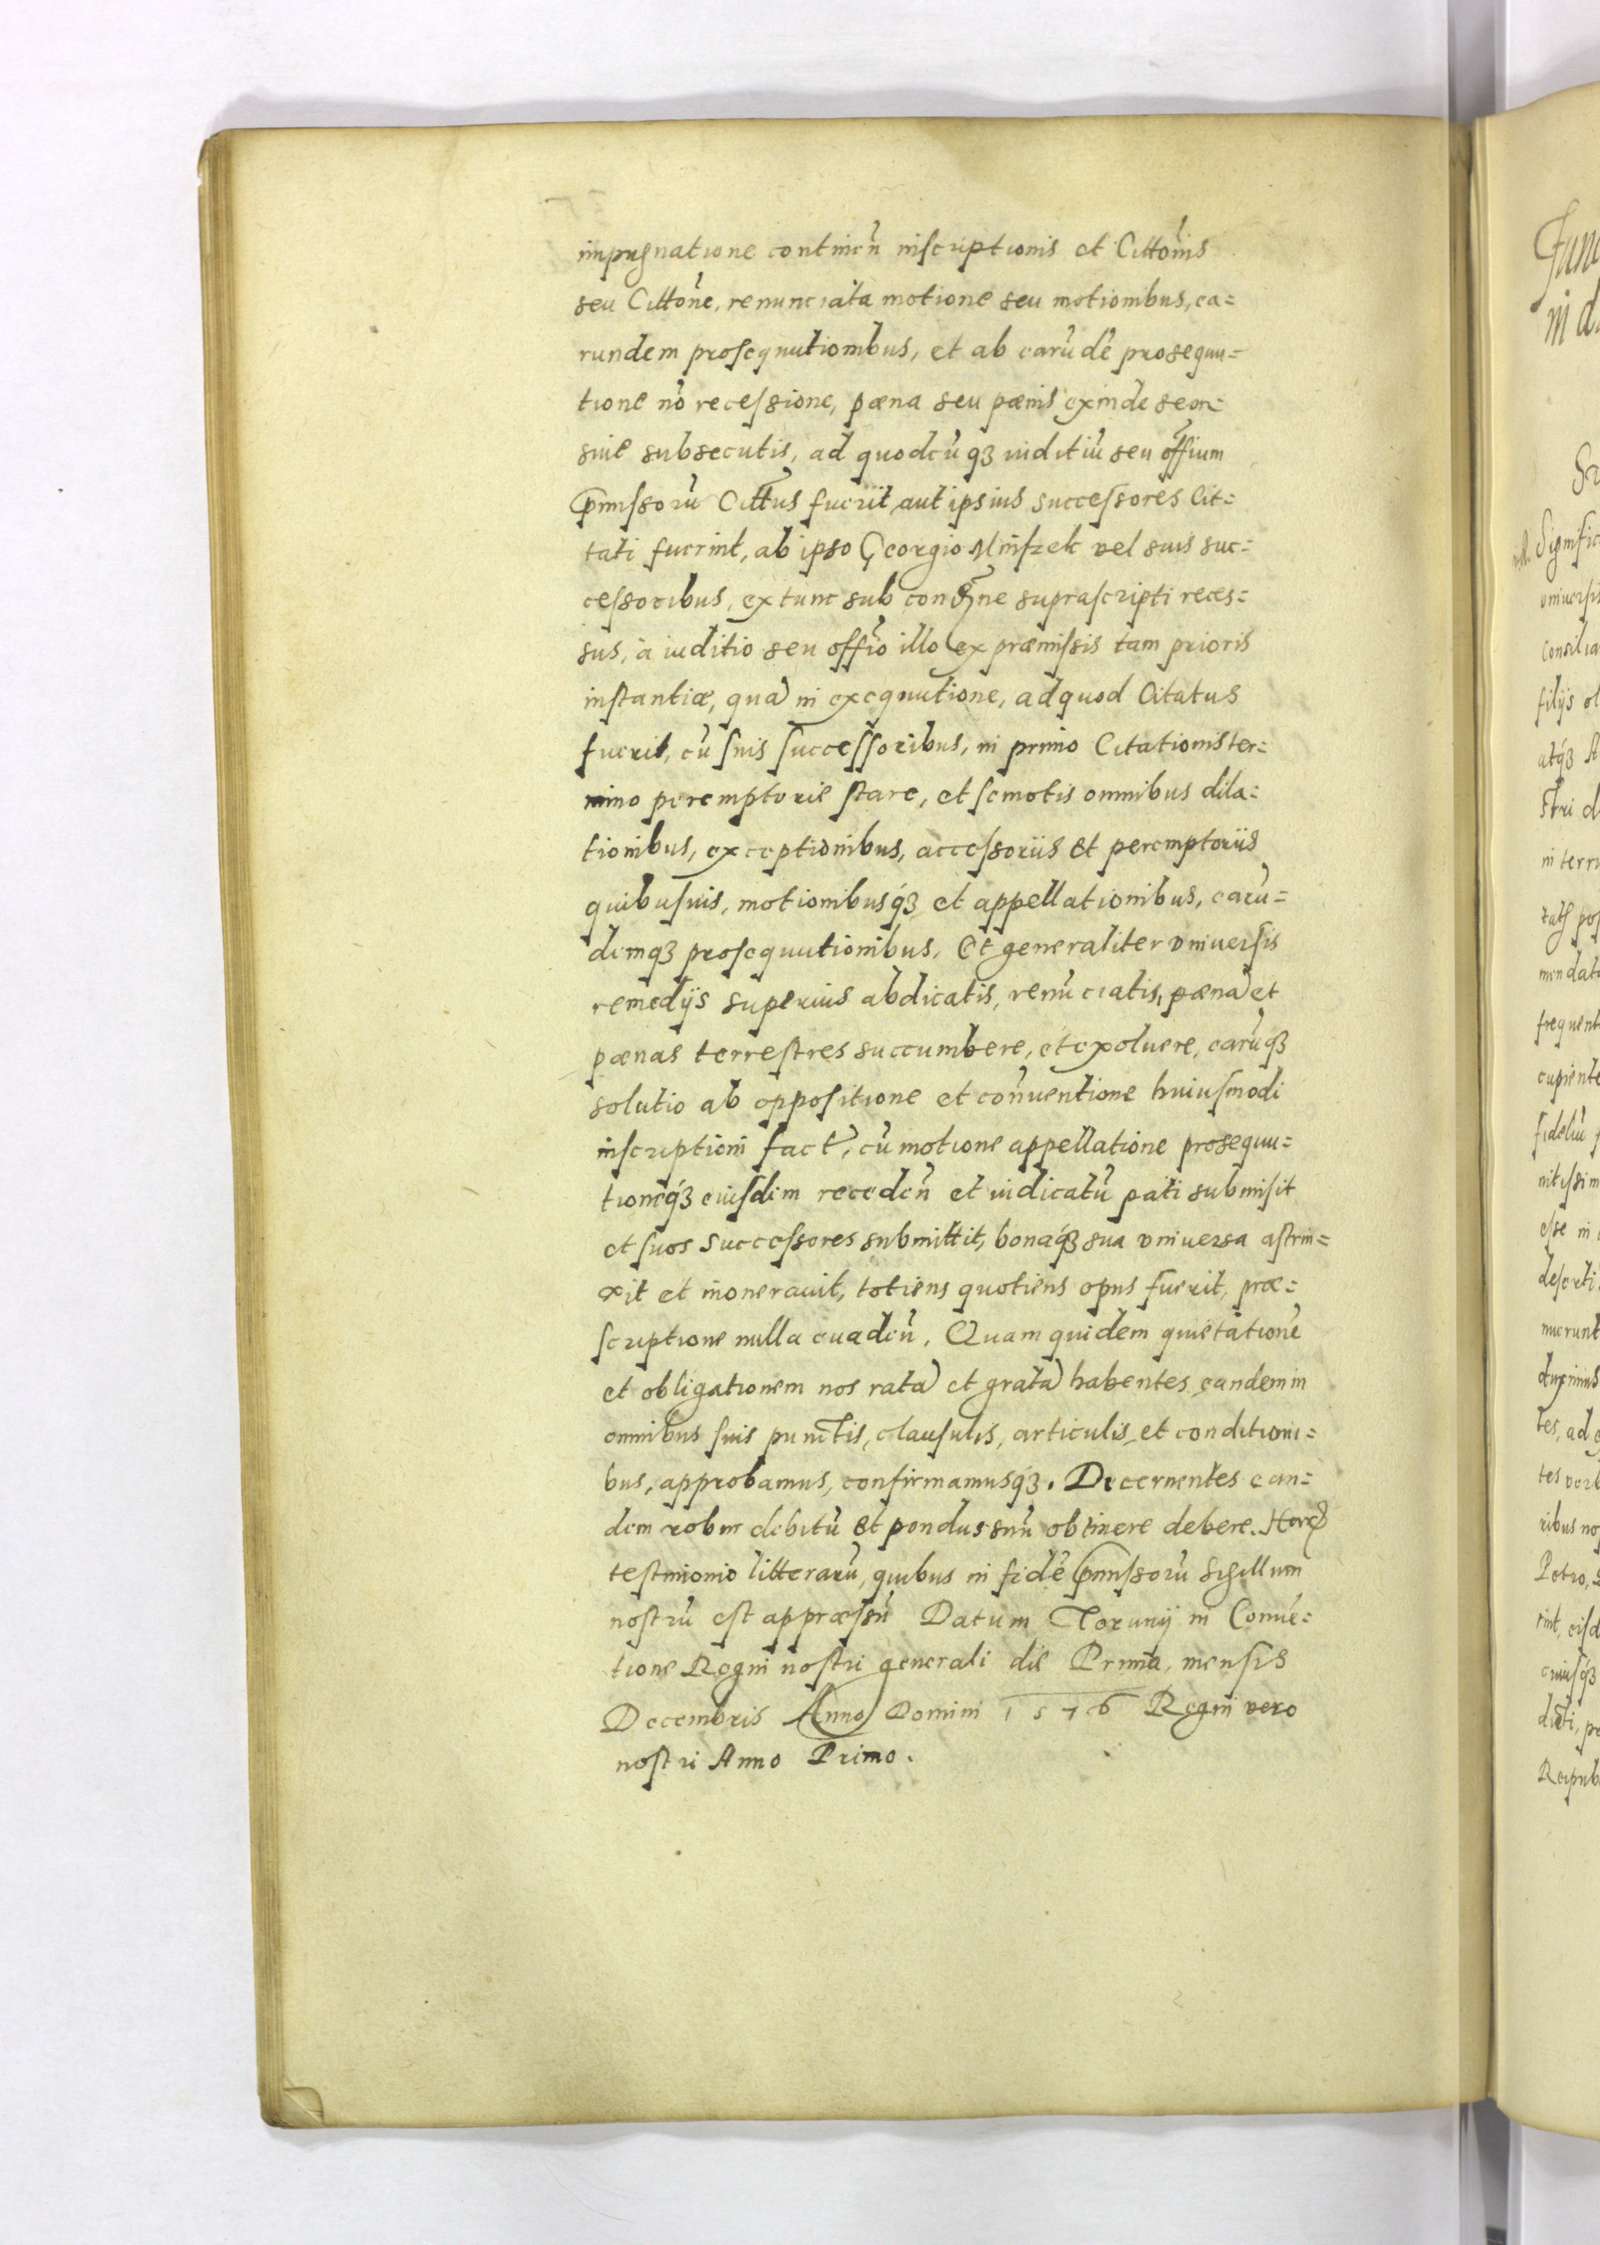 impugnatione continen̄ inscriptionis et Citto͞nis
seu Citto͞ne, renunciata motione seu motionibus, ea=
rundem prosequutionibus, et ab earū dē prosequu=
tione nō recessione, pæna seu pænis exinde seor=
siue subsecutis, ad quodcūqꝫ iuditiū seu offi͞um
p͞missorū Citt͞us fuerit, aut ipsius successores Cit=
tati fuerint, ab ipso Georgio Mniszek vel suis suc=
cessoribus, extunc sub suprascripti reces=
sus, à iuditio seu offi͞o illo ex præmissis tam prioris
instantiæ, quā in exequutione, ad quod Citatus
fuerit, cū suis successoribus, in primo Citationis ter=
mino peremptorie stare, et semotis omnibus dila=
tionibus, exceptionibus, accessoriis et peremptoriis
quibusuis, motionibusqꝫ et appellationibus, earū=
demqꝫ prosequutionibus, Et generaliter vniuersis
remedijs superius abdicatis, renūciatis, pænā et
pænas terrestres succumbere, et exoluere, earūqꝫ
solutio ab oppositione et conuentione huiusmodi
inscriptioni fact̄, cū motione appellatione prosequu=
tioneqꝫ eiusdem receden̄ et iudicatū pati submisit
et suos successores submittit, bonaqꝫ sua vniuersa astrin=
xit et inonerauit, totiens quotiens opus fuerit, præ=
scriptione nulla euaden̄. Quam quidem quietationē
et obligationem nos ratā et gratā habentes, eandem in
omnibus suis punctis, clausulis, articulis, et conditioni=
bus, approbamus, confirmamusqꝫ. Decernentes ean=
dem robur debitū et pondus suū obtinere debere. Harū
testimonio litterarū, quibus in fidē p͞missorū sigillum
nostrū est appræssū Datum Torunij in Conuē=
tione Regni nostri generali die Prima, mensis
Decembris Anno Domini 1576 Regni vero
nostri Anno Primo.